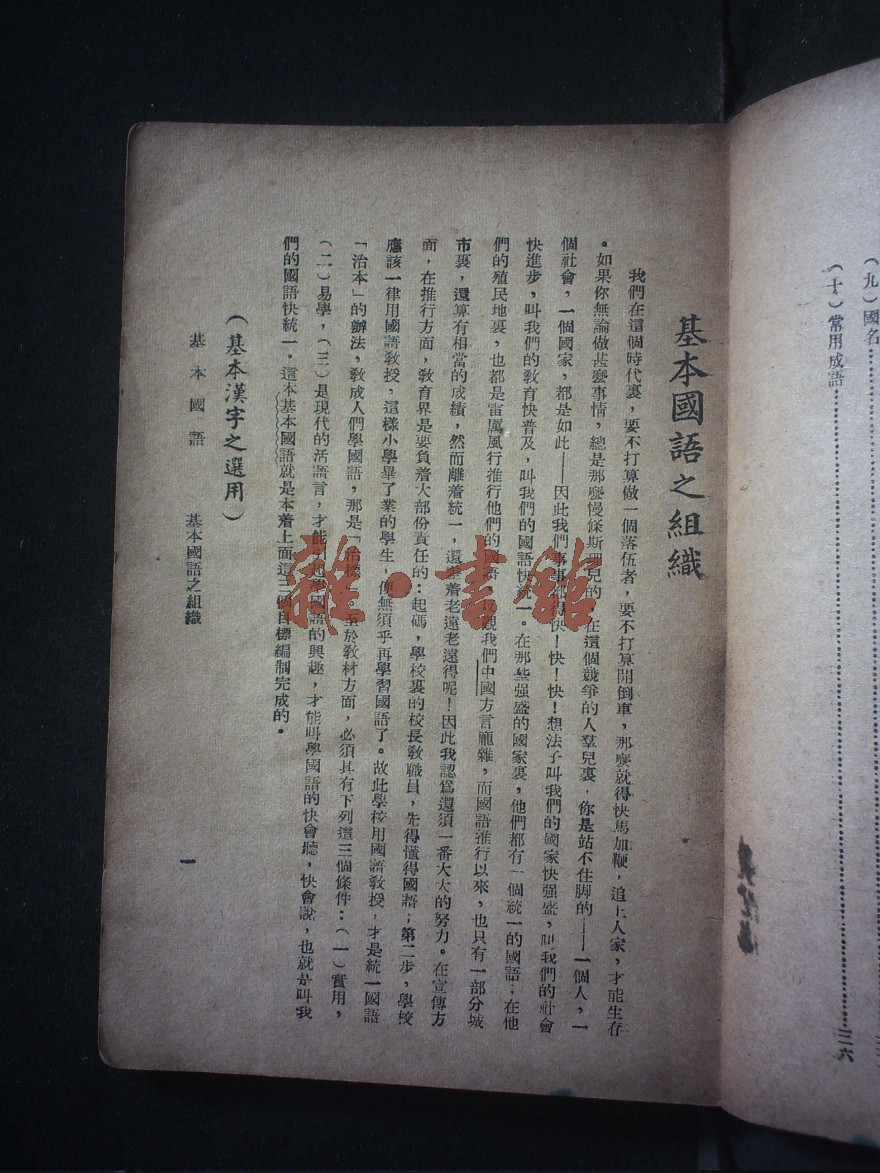 (九)國名
(十)常用成語……三六
基本國語之組織
我們在這個時代裏,要不打算做一個落伍者,要不打算開倒車,那麼就得快馬加鞭,追上人家,才能生存
。如果你無論做甚麼事情,總是那麼慢條斯理兒的,在這個競爭的人羣兒裏,你是站不住脚的——一個人,一
個社會,一個國家,都是如此——因此我們事事都得快!快!快!想法子叫我們的國家快强盛,叫我們的社會
快進步,叫我們的敎育快普及,叫我們的國語快統一。在那些强盛的國家裏,他們都有一個統一的國語;在他
們的殖民地裏,也都是雷厲風行推行他們的國語 觀我們中國方言龐雜,而國語推行以來,也只有一部分城
市裏,還算有相當的成績,然而離着統一,還差着老遠老遠得呢!因此我認爲還須一番大大的努力。在宣傳方
面,在推行方面,敎育界是要負着大部份責任的:起碼,學校裏的校長敎職員,先得懂得國語;第二步,學校
應該一律用國語敎授,這樣小學畢了業的學生,便無須乎再學習國語了。故此學校用國語敎授,才是統一國語
「治本」的辦法,敎成人們學國語,那是「治標 至於敎材方面,必須具有下列這三個條件:(一)實用,
(二)易學,(三)是現代的活語言,才能引起學國語的興趣,才能叫學國語的快會聽,快會說,也就是叫我
們的國語快統一,這本基本國語就是本着上面這三個目標編制完成的。
(基本漢字之選用)
基本國語 基本國語之組織 一
雜·書館